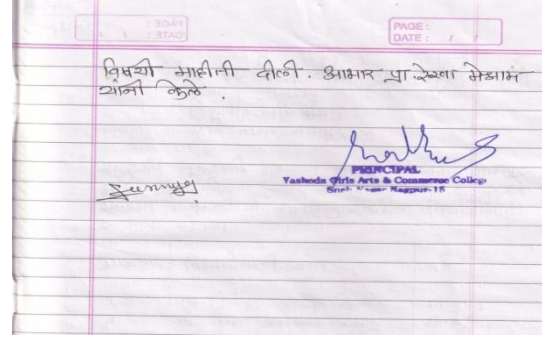 PAGE :
DATE : / /
विषयी माहीती दीली. आभार प्रा. रेखा मेश्राम
यांनी केले .
PRINCIPAL
Yashoda Girls Arts & Commerce College
Sneh Nagar Nagpur-15